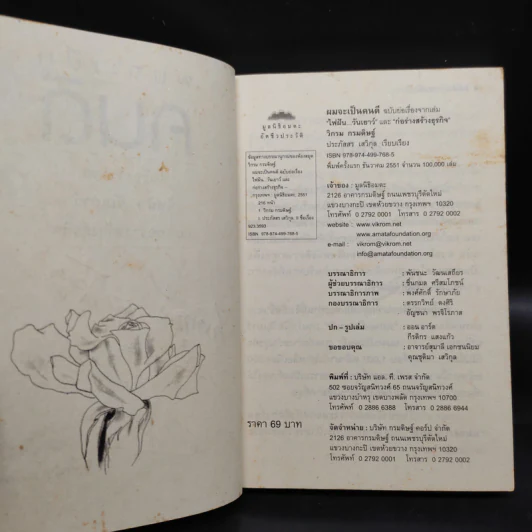 มูลนิธิอมตะ
อัตชีวประวัติ
ข้อมูลทางบรรณานุกรมของห้องสมุด
วิกรม กรมดิษฐ์
ผมจะเป็นคนดี ฉบับย่อเรื่อง
"ไฟฝัน..วันเยาว์ และ
ก่อร่างสร้างธุรกิจ.-
กรุงเทพฯ : มูลนิธิอมตะ, 2551
หน้า
1. วิกรม กรมดิษฐ์
I. ประภัสสร เสวิกุล, II ชื่อเรื่อง
923.3593
ISBN 978-974-499-768-5
ผมจะเป็นคนดี ฉบับย่อเรื่องจากเล่ม
"ไฟฝัน...วันเยาว์" และ "ก่อร่างสร้างธุรกิจ"
วิกรม กรมดิษฐ์
ประภัสสร เสวิกุล เรียบเรียง
ISBN 978-974-499-768-5
พิมพ์ครั้งแรก ธันวาคม 2551 จำนวน 100,000 เล่ม
เจ้าของ : มูลนิธิอมตะ
2126 อาคารกรมดิษฐ์ ถนนเพชรบุรีตัดใหม่
แขวงบางกะปิ เขตห้วยขวาง กรุงเทพฯ 10320
โทรศัพท์ 0 2792 0001 โทรสาร 0 2792 0002
website : www.vikrom.net
www.amatafoundation.org
e-mail : vikrom@vikrom.net
info@amatafoundation.org
บรรณาธิการ : พันชนะ วัฒนเสถียร
ผู้ช่วยบรรณาธิการ : ชื่นกมล ศรีสมโภชน์
บรรณาธิการภาพ : พงศ์ศักดิ์ รักษาภัย
กองบรรณาธิการ : ธรรกวิทย์ ดงศิริ
อัญชนา พรจิโรภาส
ปก - รูปเล่ม : ออน อาร์ต
กีรติกร แสงแก้ว
ขอขอบคุณ : อาจารย์สุมาลี เอกชนนิยม
คุณชุติมา เสวิกุล
พิมพ์ที่ : บริษัท แอล. ที. เพรส จำกัด
502 ซอยจรัญสนิทวงศ์ 65 ถนนจรัญสนิทวงศ์
แขวงบางบำหรุ เขตบางพลัด กรุงเทพฯ 10700
โทรศัพท์ 0 2886 6388 โทรสาร 0 2886 6944
ราคา 69 บาท
จัดจำหน่าย : บริษัท กรมดิษฐ์ คอร์ป จำกัด
2126 อาคารกรมดิษฐ์ ถนนเพชรบุรีตัดใหม่
แขวงบางกะปิ เขตห้วยขวาง กรุงเทพฯ 10320
โทรศัพท์ 0 2792 0001 โทรสาร 0 2792 0002